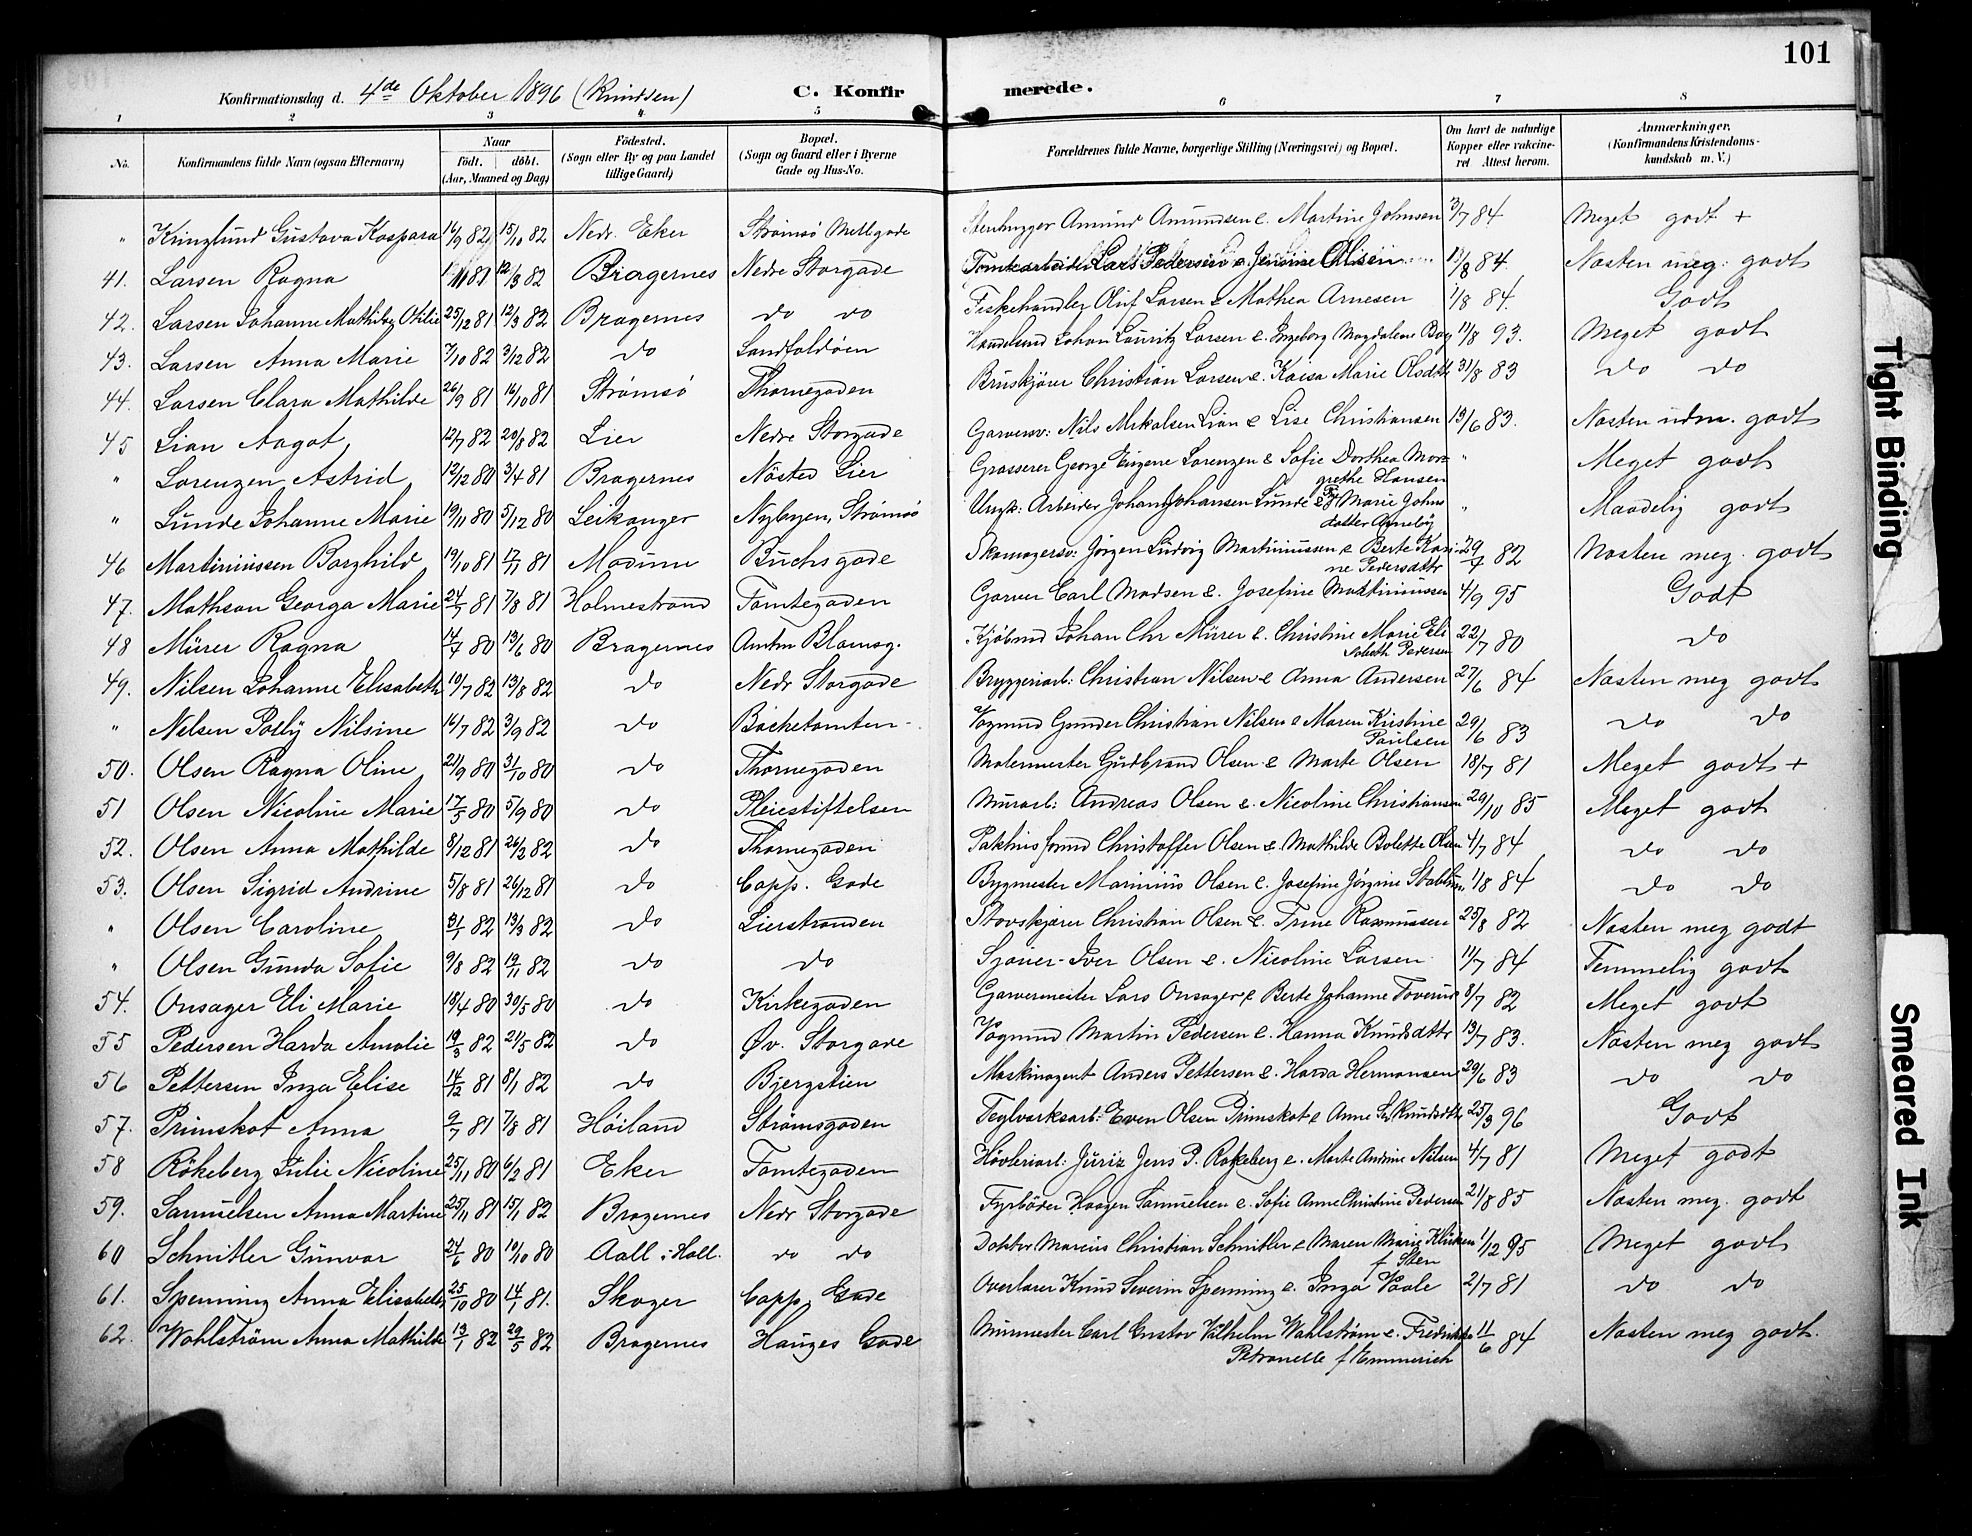 101
Konfirmationsdag d. 4de Oktober 1896 (Knudsen) C. Konfirmerede.
1 2 3 4 5 6 7 8
No. Konfirmandens fulde Navn (ogsaa Efternavn) Naar födt. döbt. (Aar, Maaned og Dag) Födested. (Sogn eller By og paa Landet tillige Gaard) Bopæl. (Sogn og Gaard eller i Byerne Gade og Hus-No. Forældrenes fulde Navne, borgerlige Stilling (Næringsvei) og Bopæl. Om havt de naturlige Kopper eller vakcineret Attest herom. Anmærkninger. (Konfirmandens Kristendomskundskab m. V.)
" Kinglund Gustava Kaspara 16/9 82 15/10 82 Nedr. Eker Strømsø Amund Amundsen & Martine Johnsen 3/7 84 Meget godt +
41. Larsen Ragna 82 12/3 82 Bragernes Nedre Storgade Tomtearbeider Lars Pedersen & Jensine Olsen 84. Næsten meg. godt
42. Larsen Johanne Mathilde Otilie 25/12 81 12/3 82 Bragernes do do Fiskehandler Oluf Larsen & Mathea Arnesen 1/8 84. Godt
43. Larsen Anna Marie 7/10 82 3/12 82 do Landfaldøen Johan Lauritz Larsen & Ingeborg Magdalene 11/8 93. Meget godt
44. Larsen Clara Mathilde 26/9 81 16/10 81 Strømsø Thornegaden Bruskjører Christian Larsen & Kaisa Marie Olsdtr 31/8 83 do do
45 Lian Aagot 12/7 82 20/8 82 Lier Nedre Storgade Garversv: Nils Mikalsen Lian & Lise Christiansen 19/6 83. Næsten udm. godt
" Lorenzen Astrid 12/12 80 3/4 81 Bragernes Nøsted Lier Grosserer George Eugene Lorenzen & Sofie Dorthea Mar- " Meget godt
grethe Hansen
" Lunde Johanne Marie 19/11 80 5/12 80 Leikanger Nybyen, Strømsø Arbeider Johan Johansen Lunde & Marie Johns " Maadelig godt
datter
46 Martiniussen Borghild 19/10 81 17/11 81 Modum Buchsgade Skomagersv: Jørgen Ludvig Martiniussen & Berte Kari- 29/7 82 Næsten meg. godt
ne Pedersdttr
47. Mathson Georga Marie 24/5 81 7/8 81 Holmestrand Tomtegaden Garver Carl Madsen & Josefine Mathiniussen 4/9 95 Godt
48 Mürer Ragna 14/7 80 13/6 80 Bragernes Amtm Blomsg. Kjøbmd Johan Chr Mürer & Christine Marie Eli 22/7 80 do
sabeth Pedersen
49. Nilsen Johanne Elisabeth 10/7 82 13/8 82 do Nedr Storgade Bryggeriarb: Christian Nilsen & Anna Andersen 27/6 84 Næsten meg godt
" Nelsen Polly Nilsine 16/7 82 3/9 82 do Bøcketomten Vognmd Gunder Christian Nilsen & Maren Kristine 29/6 83 do do
Paulsen
50. Olsen Ragna Oline 21/9 80 31/10 80 do Thornegaden Malermester Gudbrand Olsen & Marte Olsen 18/7 81 Meget godt +
51 Olsen Nicoline Marie 17/5 80 5/9 80 do Pleiestiftelsen Murarb: Andreas Olsen & Nicoline Christiansen 29/10 85 Meget godt
52. Olsen Anna Mathilde 8/12 81 26/2 82 do Thornegaden Christoffer Olsen & Mathilde Bolette Olsen 4/7 84 do do
53. Olsen Sigrid Andrine 5/8 81 26/12 81 do Capp. Gade Bygmester Marinius Olsen & Josefine Jørgine 1/8 84 do do
" Olsen Caroline 3/1 82 13/3 82 do Lierstranden Christian Olsen & Trine Rasmussen 25/8 82 Næsten meg godt
" Olsen Gunda Sofie 9/8 82 19/11 82 do do Sjauer Iver Olsen & Nicoline Larsen 11/7 84 Temmelig godt
54. Onsager Eli Marie 18/4 80 30/5 80 do Kirkegaden Garvermester Lars Onsager & Berte Johanne Foverud 8/7 82 Meget godt
55 Pedersen Harda Amalie 19/3 82 21/5 82 do Øv. Storgade Vognmd Martin Pedersen & Hanna Knudsdttr 13/7 83. Næsten meg godt
56 Pettersen Inga Elise 14/12 81 8/1 82 do Bjergstien Maskinagent Anders Pettersen & Harda Hermansen 29/6 83 do do
57. Primskot Anna 9/7 81 7/8 81 Høiland Strømsgaden Teglværksarb: Even Olsen Primskot & Anne Knudsdtr 25/3 96 Godt
58 Rökeberg Julie Nicoline 25/11 80 6/2 81 Eker Tomtegaden Høvleriarb: Jens P. Rökeberg & Marte Andrine Nilsen 4/7 81 Meget godt
59. Samuelsen Anna Martine 25/11 81 15/1 82 Bragernes Nedr Storgade Fyrbøder Haagen Samuelsen & Sofie Anne Christine Pedersen 21/8 85 Næsten meg. godt
60 Schnitler Gunvor 24/6 80 10/10 80 Aall i Hall. do do Doktor Marcus Christian Schnitler & Maren Marie 1/12 95 Meget godt
f Steen
61. Spenning Anna Elisabeth 25/10 80 14/1 81. Skoger Capp. Gade Overlærer Knud Severin Spenning & Inga Vaale 2/7 81 do do
62. Wahlstrøm Anna Mathilde 13/1 82 29/5 82 Bragernes Hauges Gade Murmester Carl Gustav Vilhelm Wahlstrøm & Fredrikke 11/6 84 Næsten meg godt.
Petronelle f. Emmerich
Tight Binding
Smeared Ink